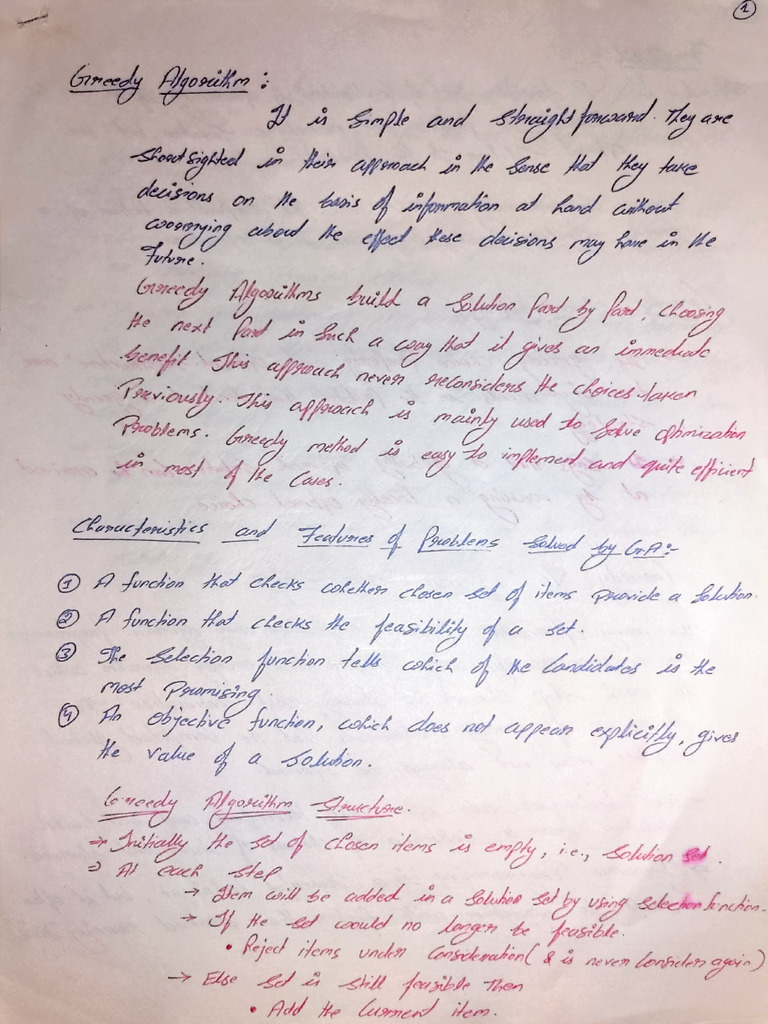 1
Greedy Algorithm :
It is simple and straightforward. They are
shortsighted in their approach in the sense that they take
decisions on the basis of information at hand without
worrying about the effect these decisions may have in the
future.
Greedy Algorithms build a solution part by part, choosing
the next part in such a way that it gives an immediate
benefit This approach never reconsiders the choices taken
Previously. This approach is mainly used to solve optimization
Problems. Greedy method is easy to implement and quite efficient
in most of the cases.
Characteristics and Features of Problems solved by GA:-
1 A function that checks whether chosen set of items provide a solution.
2 A function that checks the feasibility of a set.
3 The selection function tells which of the candidates is the
most promising.
4 An objective function, which does not appear explicitly, gives
the value of a solution.
Greedy Algorithm Structure.
→ Initially the set of chosen items is empty, i.e., solution set.
→ At each step
→ Item will be added in a solution set by using selection function.
→ If the set would no longer be feasible.
• Reject items under consideration (& is never consider again)
→ Else set is still feasible Then
• Add the current item.